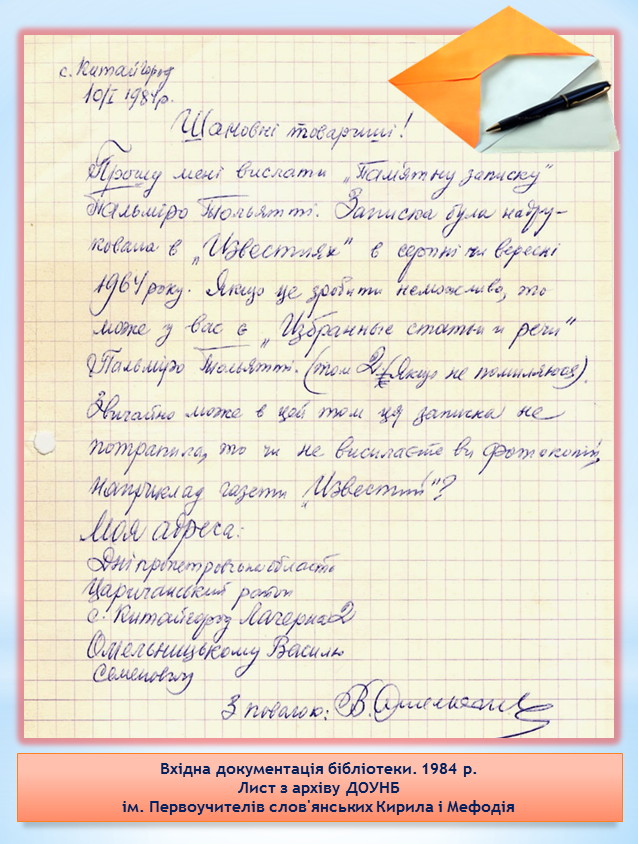 с. Китайгород
10/I 1984р.
Шановні товариші!
Прошу мені вислати „Пам'ятну записку"
Пальміро Тольятті. Записка була надру-
кована в „Известиях" в серпні чи вересні
1964 року. Якщо це зробити неможливо, то
може у вас є „Избранные статьи и речи"
Пальміро Тольятті. (том 2 Якщо не помиляюся).
Звичайно може в цей том ця записка не
потрапила, то чи не висилаєте ви фотокопій,
наприклад газети „Известий"?
Моя адреса:
Дніпропетровська область
Царичанський район
с. Китайгород Лагерна 2
Омельницькому Василю
Семеновичу
З повагою: В.
Вхідна документація бібліотеки. 1984 р.
Лист з архіву ДОУНБ
ім. Первоучителів слов'янських Кирила і Мефодія